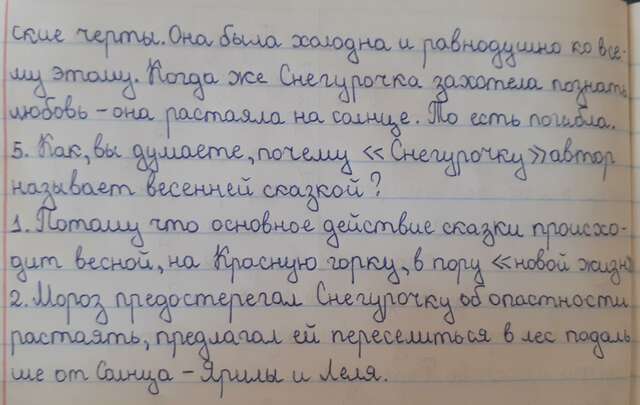 ские черты. Она была холодна и равнодушна ко все-
му этому. Когда же Снегурочка захотела познать
любовь - она растаяла на солнце. То есть погибла.
5. Как, вы думаете, почему «Снегурочку» автор
называет весенней сказкой?
1. Потому что основное действие сказки происхо-
дит весной, на Красную горку, в пору «новой жизн
2. Мороз предостерегал Снегурочку об опастности
растаять, предлагал ей переселиться в лес подаль
ше от Солнца - Ярилы и Леля.